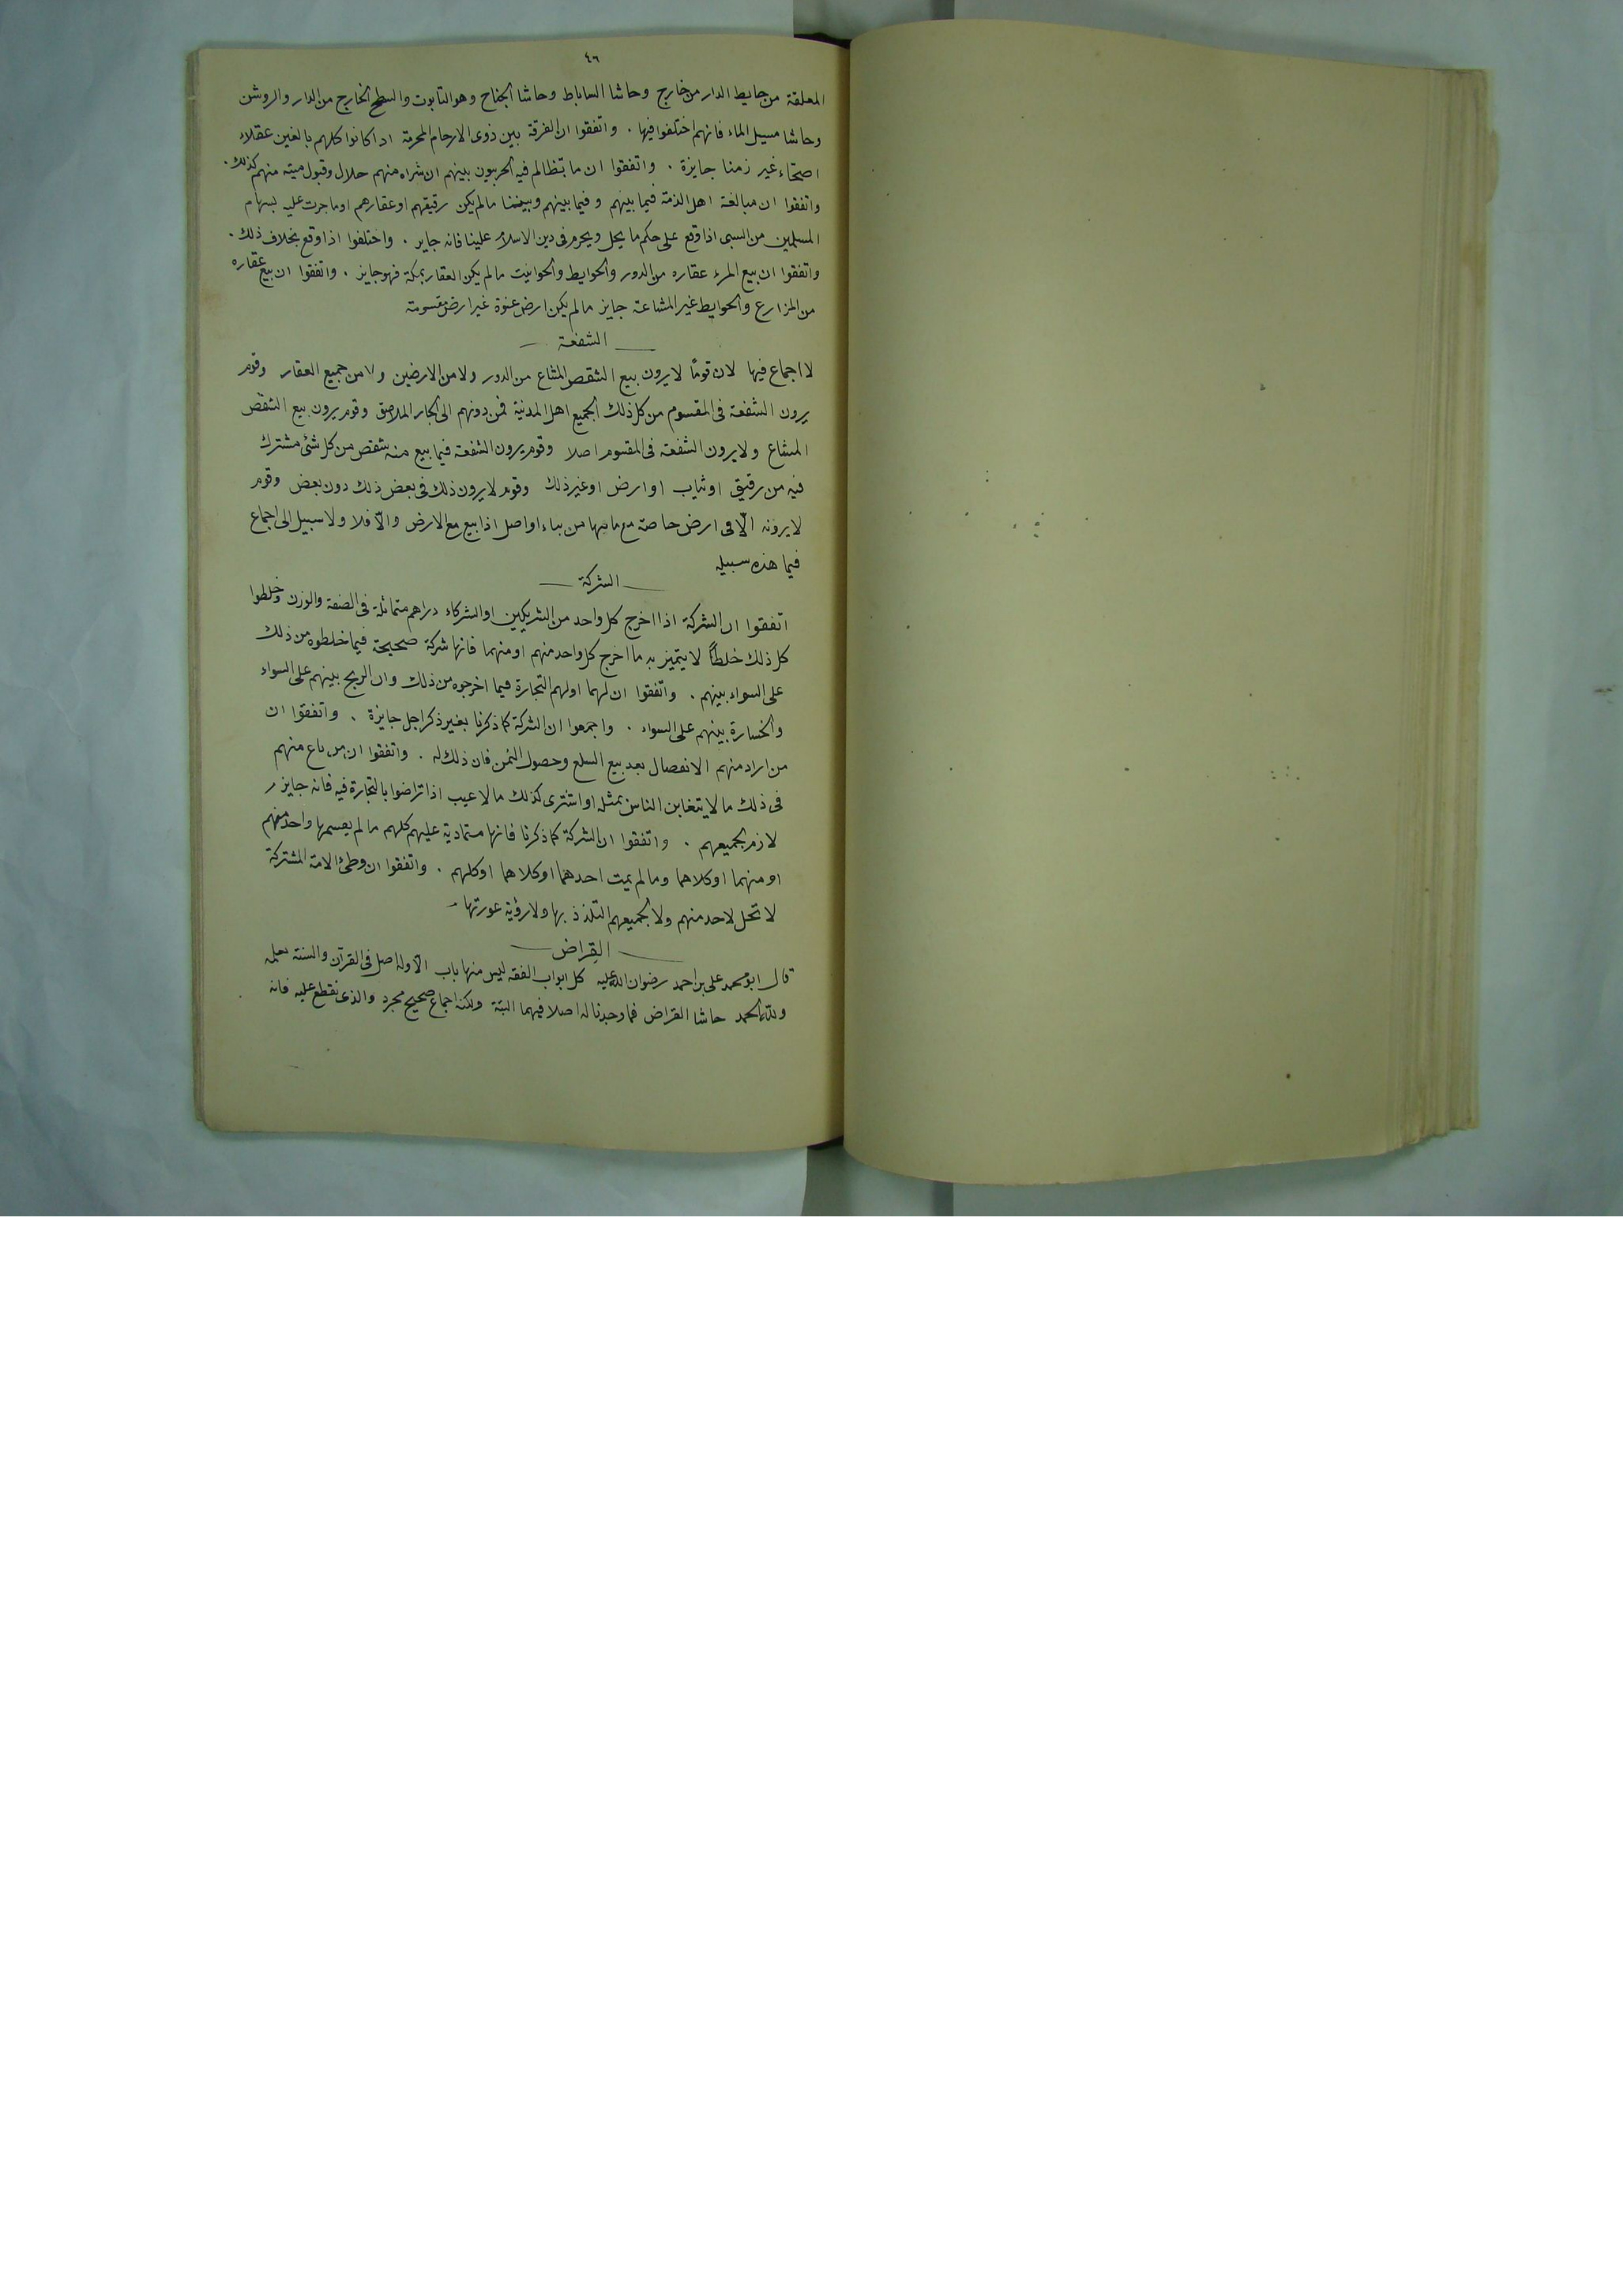 ٤٦
المعلقة من حايط الدار من خارج وحاشا الساباط وحاشا الجناح وهو التابوت والسطح الخارج من الدار والروشن
وحاشا مسيل الماء فانهم اختلفوا فيها . واتفقوا ان الفرقة بين ذوى الارحام المحرمة اذا كانوا كلهم بالغين عقلاء
اصحاء غير زمنا جايزة . واتفقوا ان ما يتظالم فيه الحربيون بينهم ان شراه منهم حلال وقبول ميته منهم كذلك .
واتفقوا ان مبالغة اهل الذمة فيما بينهم و فيما بينهم وبيننا مالم يكن رقيقهم او عقارهم او ما جرت عليه لسهام
المسلمين من السبى اذا وقع على حكم ما يحل ويحرم فى دين الاسلام علينا فانه جايز . واختلفوا اذا وقع بخلاف ذلك .
واتفقوا ان بيع المرء عقاره من الدور والحوايط والحوانيت مالم يكن العقار بمكة فهو جايز . واتفقوا ان بيع عقاره
من المزارع والحوايط غير المشاعة جايز مالم يكن ارض عنوة غير ارض مقسومة
الشفعة
لا اجماع فيها لان قومًا لا يرون بيع الشقص المشاع من الدور ولا من الارضين ولا من جميع العقار وقوم
يرون الشفعة فى المقسوم من كل ذلك الجميع اهل المدنية فمن دونهم الى الجار الملاصق وقوم يرون بيع الشقص
المشاع ولا يرون الشفعة فى المقسوم اصلا وقوم يرون الشفعة فيما بيع منه شقص من كل شئ مشترك
فيه من رقيق او ثياب او ارض او غير ذلك وقوم لا يرون ذلك فى بعض ذلك دون بعض وقوم
لا يرونه الّا فى ارض خاصة مع ما فيها من بناء او اصل اذا بيع مع الارض والّا فلا ولا سبيل الى اجماع
فيما هذه سبيله
الشركة
اتفقوا ان الشركة اذا اخرج كل واحد من الشريكين او الشركاء دراهم متماثلة فى الصفة والوزن وخلطوا
كل ذلك خلطًا لا يتميز به ما اخرج كل واحد منهم او منهما فانها شركة صحيحة فيما خلطوه من ذلك
على السواء بينهم . واتفقوا ان لهما او لهم التجارة فيما اخرجوه من ذلك وان الربح بينهم على السواء
والخسارة بينهم على السواء . واجمعوا ان الشركة كما ذكرنا بغير ذكر اجل جايزة . واتفقوا ان
من اراد منهم الانفصال بعد بيع السلع وحصول الثمن فان ذلك له . واتفقوا ان من باع منهم
فى ذلك ما لا يتغابن الناس بمثله او اشترى كذلك مالا عيب اذا تراضوا بالتجارة فيه فانه جايز
لازم لجميعهم . واتفقوا ان الشركة كما ذكرنا فانها متمادية عليهم كلهم مالم يقسمها واحد منهم
او منهما او كلاهما ومالم يمت احدهما او كلاهما او كلهم . واتفقوا ان وطئ الامة المشتركة
لا تحل لاحد منهم ولا لجميعهم التلذذ بها ولا رؤية عورتها
القِراض
قال ابو محمد على بن احمد رضوان الله عليه كل ابواب الفقه ليس منها باب الّا وله اصل فى القرآن والسنة نعلمه
ولله الحمد حاشا القراض فما وجدنا له اصلا فيهما البتة ولكنه اجماع صحيح مجرد والذى نقطع عليه فانه